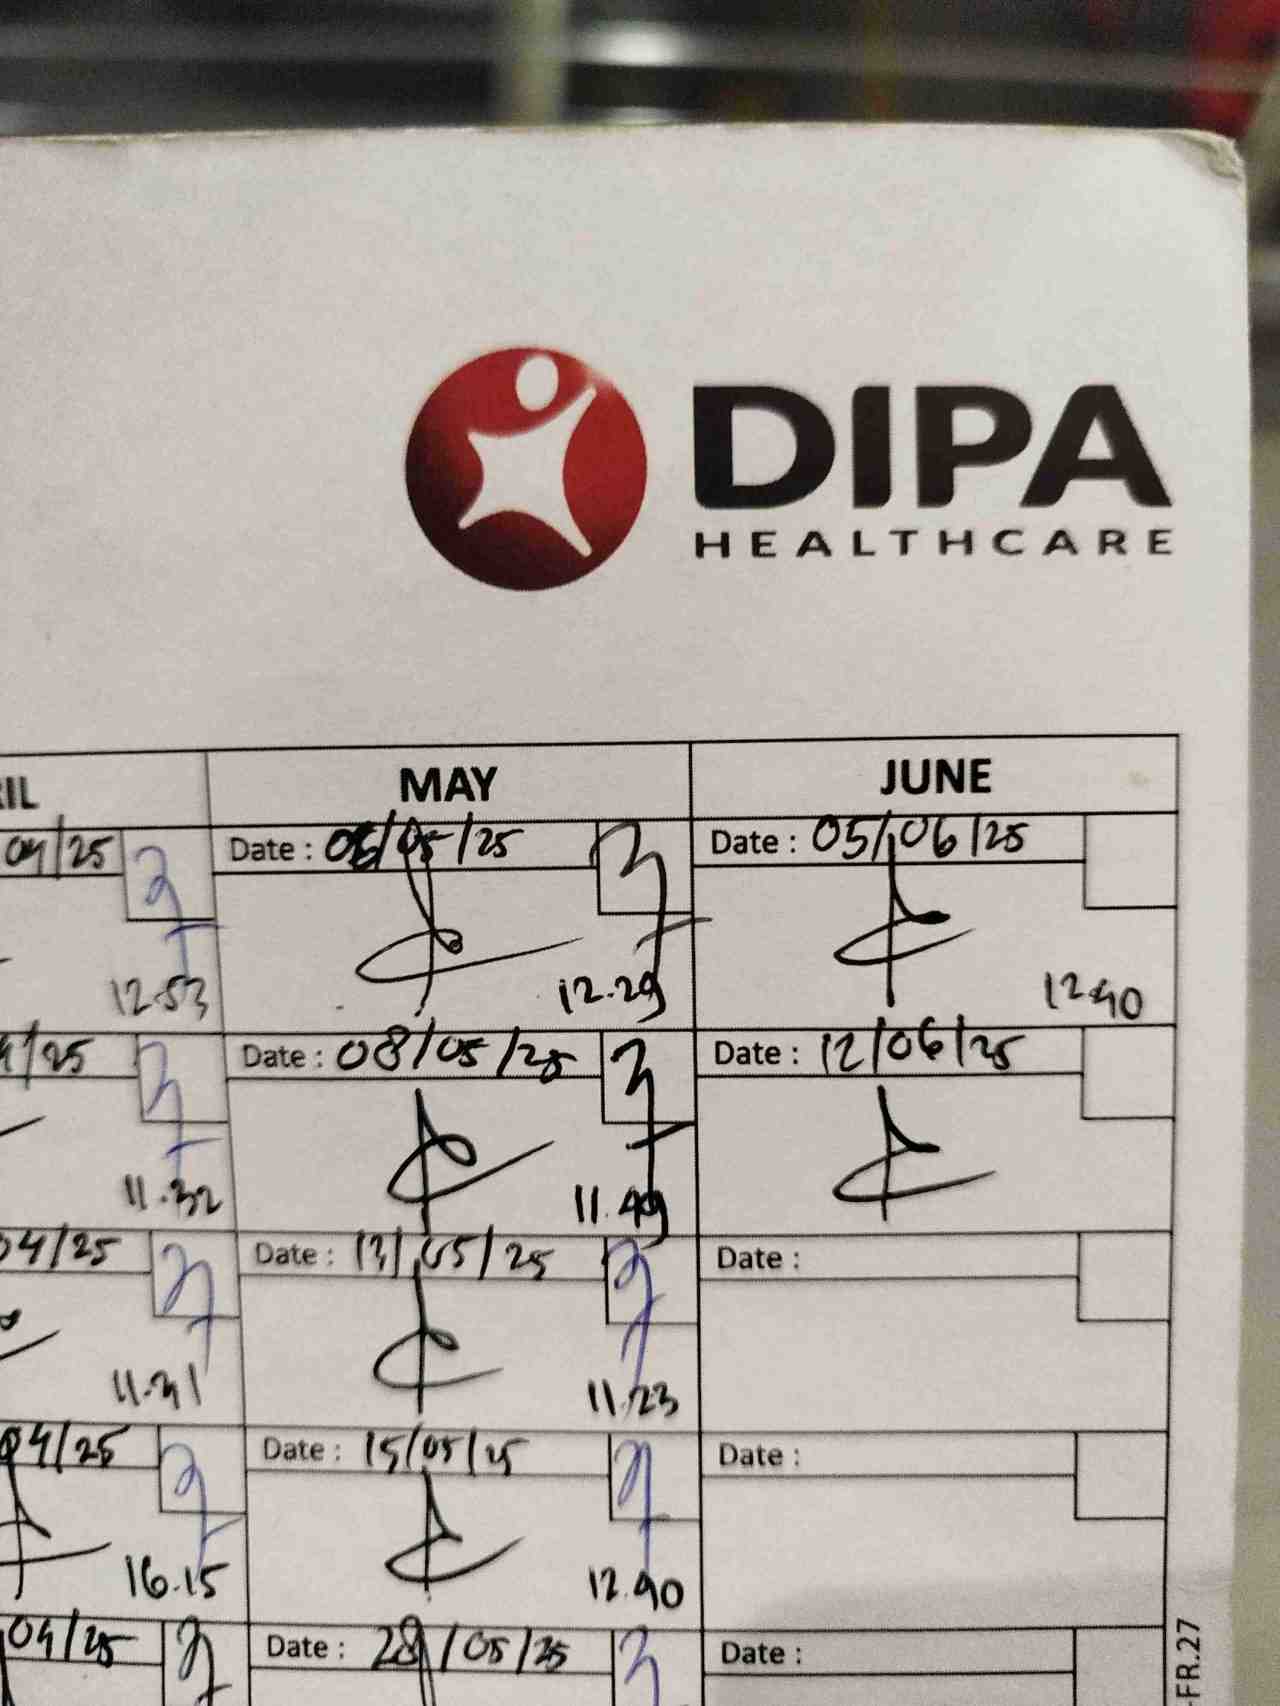 DIPA
HEALTHCARE
MAY
JUNE
04/25
Date : 06/05/25
Date : 05/06/25
12.53
12.29
12.40
/25
Date : 08/05/25
Date : 12/06/25
11.32
11.49
04/25
Date : 13/05/25
Date :
11.41
11.23
04/25
Date : 15/05/25
Date :
16.15
12.40
04/25
Date : 28/05/25
Date :
FR.27